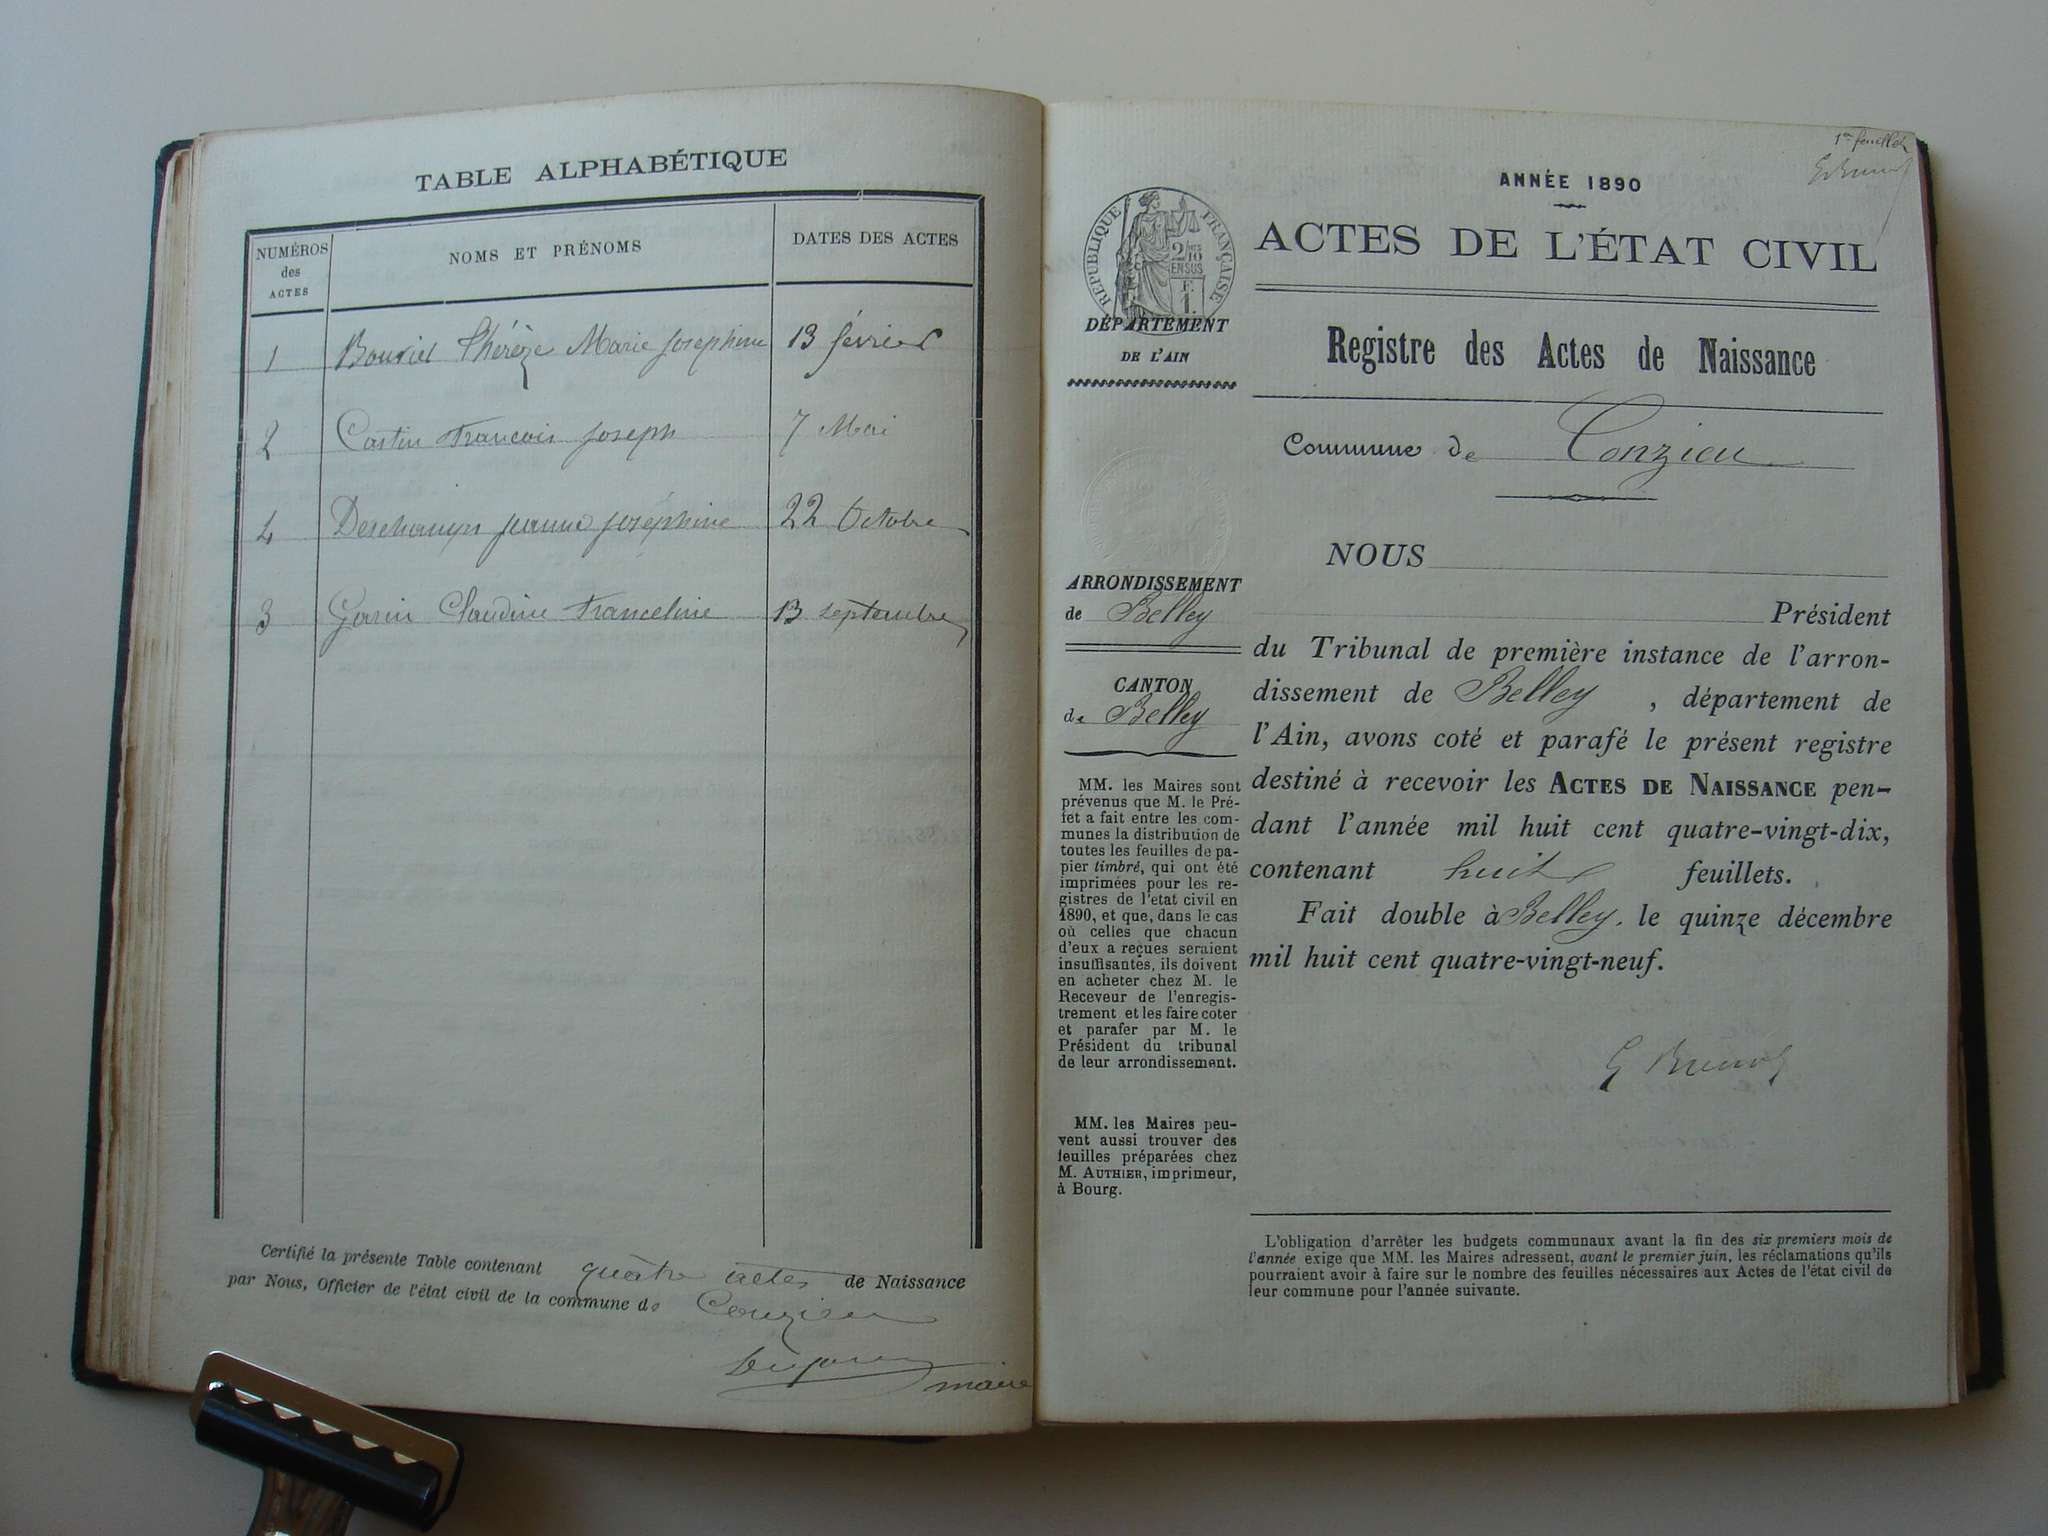 TABLE ALPHABÉTIQUE
NUMÉROS
des
ACTES
NOMS ET PRÉNOMS
DATES DES ACTES
1 Thérèze Marie Josephine 13 février
2 Castin Francois Joseph 7 Mai
4 Deschamps Jeanne Joséphine 22 Octobre
3 Garin Claudine Franceline 13 septembre
Certifié la présente Table contenant quatre actes de Naissance
par Nous, Officier de l'état civil de la commune de Conzieu
maire
1er feuillet
ANNÉE 1890
RÉPUBLIQUE FRANÇAISE
2/10
EN SUS
F.
1.
ACTES DE L'ÉTAT CIVIL
DÉPARTEMENT
DE L'AIN
Registre des Actes de Naissance
Commune de Conzieu
NOUS
ARRONDISSEMENT
de Belley
CANTON
de Belley
MM. les Maires sont
prévenus que M. le Pré-
fet a fait entre les com-
munes la distribution de
toutes les feuilles de pa-
pier timbré, qui ont été
imprimées pour les re-
gistres de l'etat civil en
1890, et que, dans le cas
où celles que chacun
d'eux a reçues seraient
insuffisantes, ils doivent
en acheter chez M. le
Receveur de l'enregis-
trement et les faire coter
et parafer par M. le
Président du tribunal
de leur arrondissement.
MM. les Maires peu-
vent aussi trouver des
feuilles préparées chez
M. AUTHIER, imprimeur,
à Bourg.
Président
du Tribunal de première instance de l'arron-
dissement de Belley, département de
l'Ain, avons coté et parafé le présent registre
destiné à recevoir les ACTES DE NAISSANCE pen-
dant l'année mil huit cent quatre-vingt-dix,
contenant huit feuillets.
Fait double à Belley, le quinze décembre
mil huit cent quatre-vingt-neuf.
L'obligation d'arrêter les budgets communaux avant la fin des six premiers mois de
l'année exige que MM. les Maires adressent, avant le premier juin, les réclamations qu'ils
pourraient avoir à faire sur le nombre des feuilles nécessaires aux Actes de l'état civil de
leur commune pour l'année suivante.